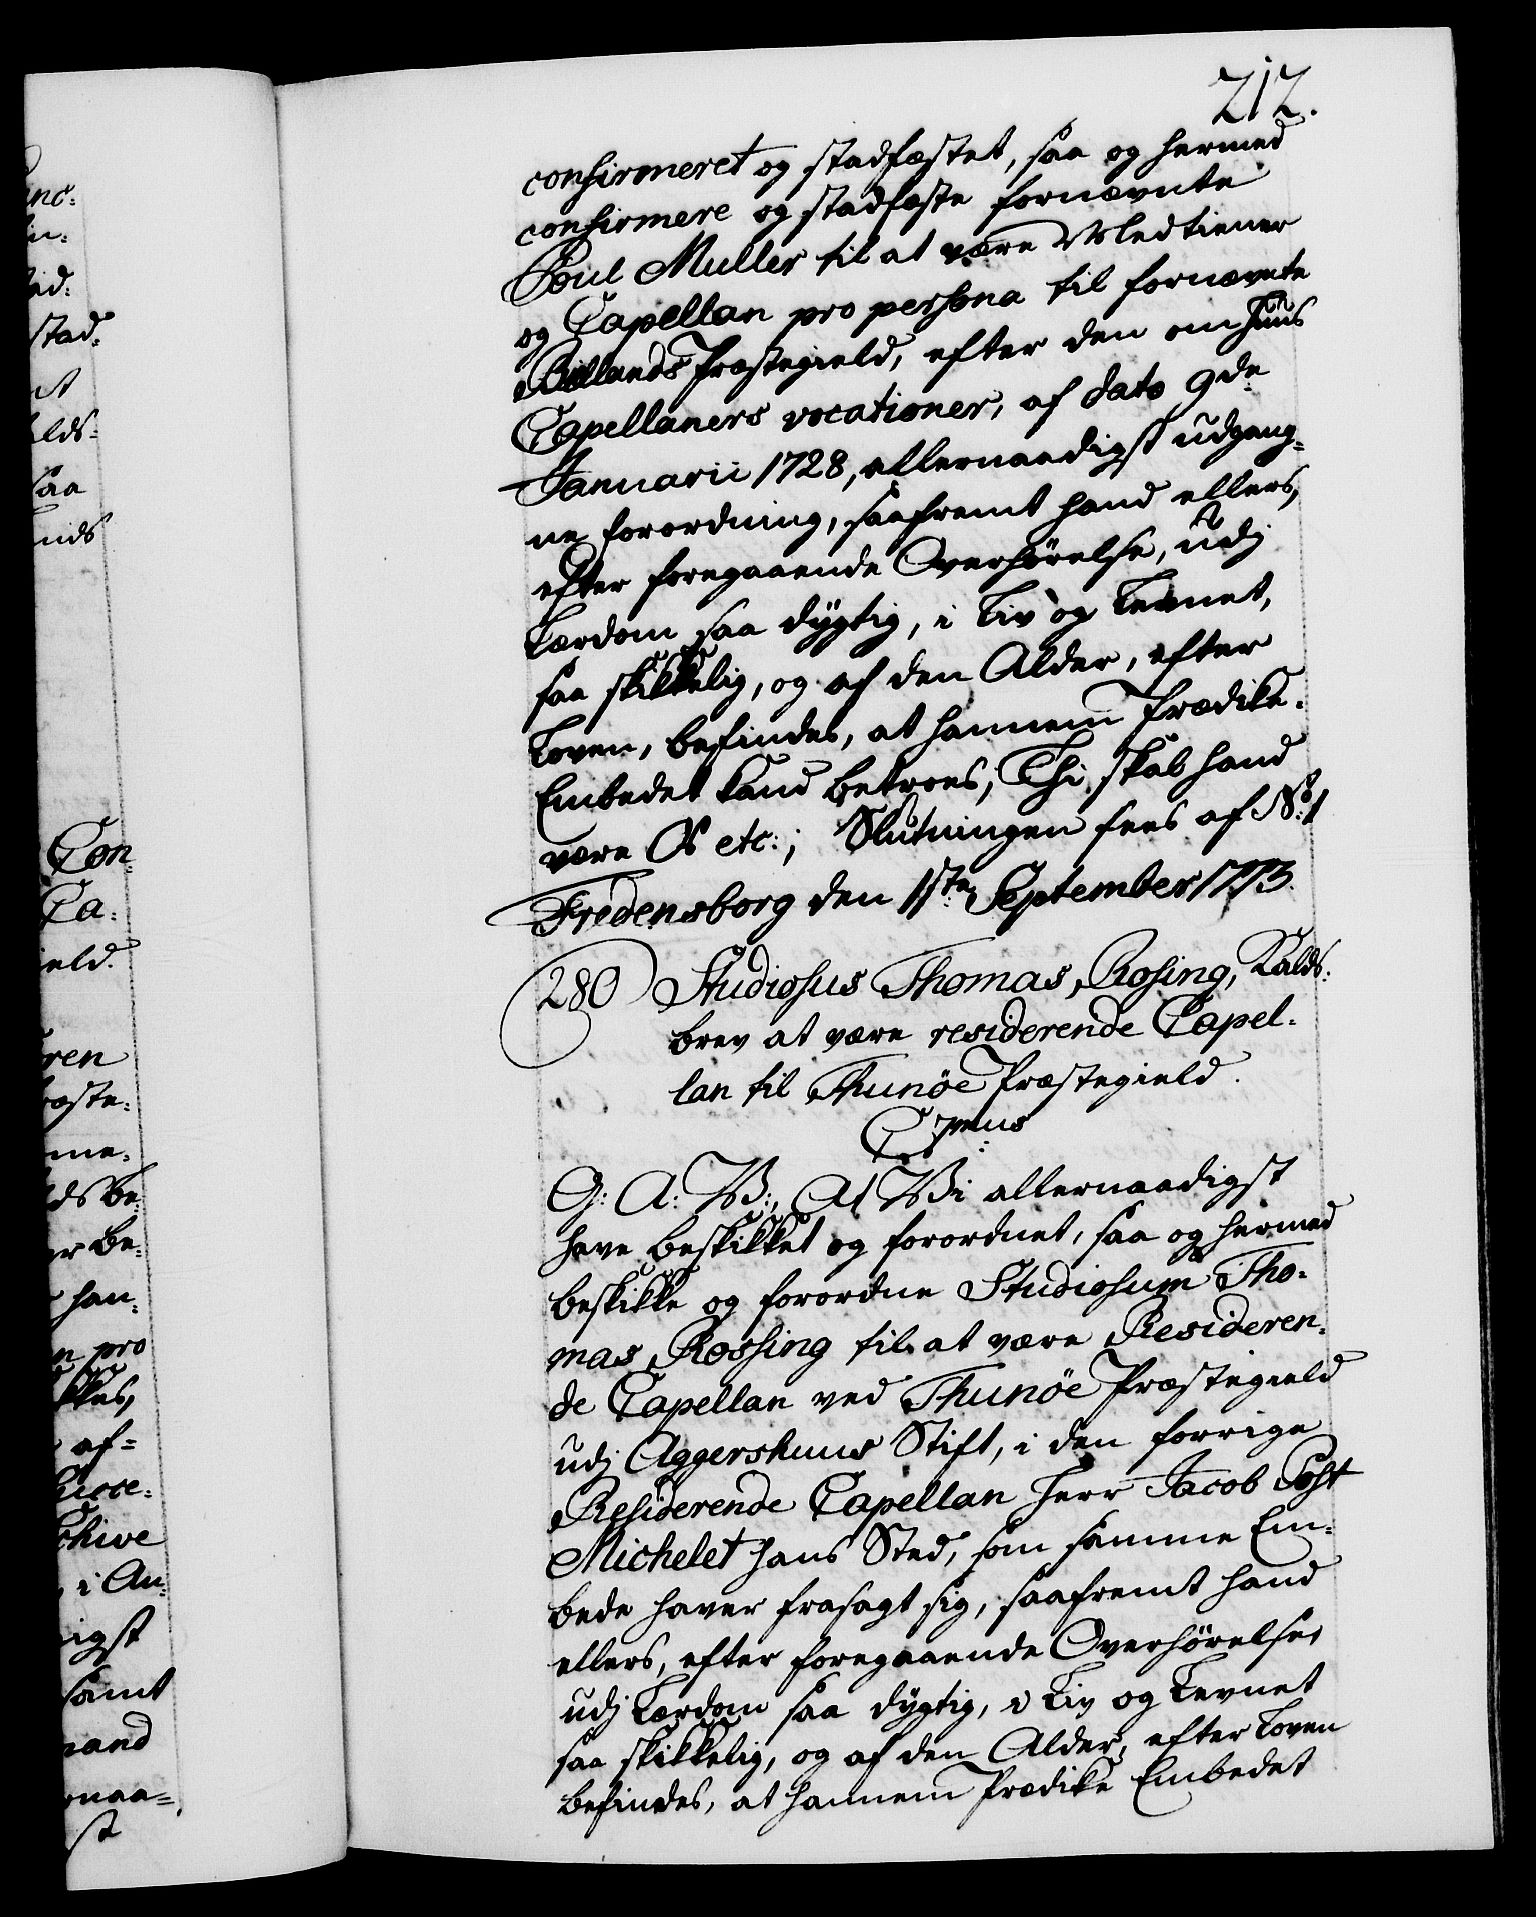 212.
confirmeret og stadfæstet, saa og hermed
confirmere og stadfæste fornævnte
Poul Muller til at være Medtiener
og Capellan pro persona til fornævnte
Præstegield, efter den om Huus
Capellaners vocationer, af dato 9de
Januarii 1728, allernaadigst udgang-
ne forordning, saafremt hand ellers,
efter foregaaende Overhørelse, udj
Lærdom saa dygtig, i Liv og Levnet,
saa skikkelig, og af den Alder, efter
Loven, befindes, at hannem Prædike-
Embedet kand betroes, Thi skal hand
være Os etc:; Slutningen sees af No: 1
Fredensborg den September 1773.
280 Studiosus Thomas Rosing, Kalds-
brev at være residerende Capel-
lan til Thunøe Præstegield.
C 7mus
G: A: V:, At Vi allernaadigst
have beskikket og forordnet, saa og hermed
beskikke og forordne Studiosum Tho-
mas Rossing til at være Resideren-
de Capellan ved Thunøe Præstegield
udj Aggershuus Stift, i den forrige
Residerende Capellan Herr Jacob Post
Michelet hans Sted, som samme Em-
bede haver frasagt sig, saafremt hand
ellers, efter foregaaende Overhørelse,
udj Lærdom saa dygtig, i Liv og Levnet
saa skikkelig, og af den Alder, efter Loven
befindes, at hannem Prædike Embedet